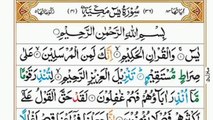 سُوْرَةُ يٰسٓ مَكِّيَّةٌ
بِسْمِ اللّٰهِ الرَّحْمٰنِ الرَّحِيْمِ
يٰسٓ ۚ وَالْقُرْاٰنِ الْحَكِيْمِ ۙ اِنَّكَ لَمِنَ الْمُرْسَلِيْنَ ۙ عَلٰى
صِرَاطٍ مُّسْتَقِيْمٍ ؕ تَنْزِيْلَ الْعَزِيْزِ الرَّحِيْمِ ۙ لِتُنْذِرَ قَوْمًا
مَّاۤ اُنْذِرَ اٰبَآؤُهُمْ فَهُمْ غٰفِلُوْنَ لَقَدْ حَقَّ الْقَوْلُ عَلٰۤى